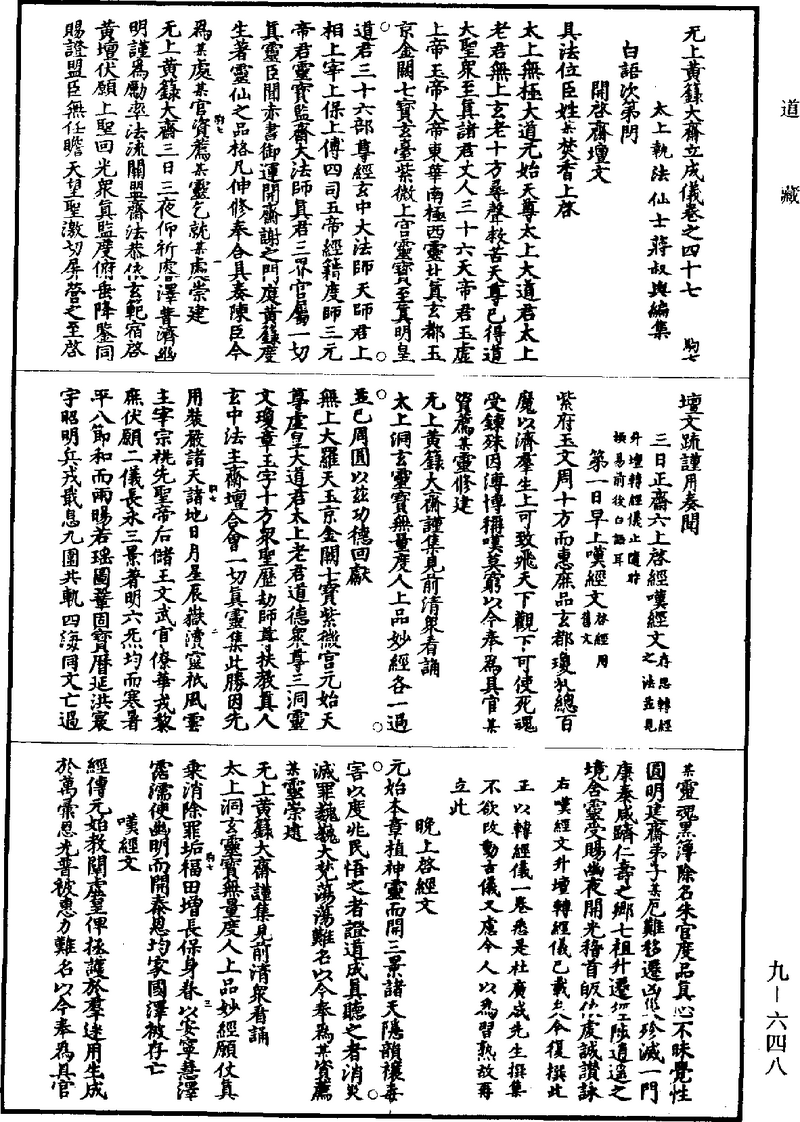 道藏
无上黃籙大齋立成儀卷之四十七 駒七
太上執法仙士蔣叔輿編集
白語次第門
開啓齋壇文
具法位臣姓某焚香上啓
太上無極大道元始天尊太上大道君太上
老君無上玄老十方尋聲救苦天尊已得道
大聖衆至真諸君丈人三十六天帝君玉虛
上帝玉帝大帝東華南極西靈北真玄都玉
京金闕七寶玄臺紫微上宮靈寶至真明皇
道君三十六部尊經玄中大法師天師君上
相上宰上保上傅四司五帝經籍度師三元
帝君靈寶監齋大法師真君三界官屬一切
真靈臣聞赤書御運開齋謝之門庭黃籙度
生著靈仙之品格凡伸修奉合具奏陳臣今
爲某處某官資薦某靈乞就某處崇建
无上黃籙大齋三日三夜仰祈瘳澤普濟幽
明謹爲勵率法流關盟齋法恭依玄範宿啓
黃壇伏願上聖回光衆真監度俯垂降鑒同
賜證盟臣無任瞻天望聖激切屏營之至啓
壇文疏謹用奏聞
三日正齋六上啓經嘆經文 存思轉經之法並見
升壇轉經儀止隨時
損易前後白語耳
第一日早上嘆經文 啓經用舊文
紫府玉文周十方而惠庶品玄都瓊札總百
魔以濟羣生上可致飛天下觀下可使死魂
受鍊殊因溥博稱嘆莫窮以今奉爲具官某
資薦某靈修建
无上黃籙大齋謹集見前清衆看誦
太上洞玄靈寶無量度人上品妙經各一過
並已周圓以茲功德回獻
無上大羅天玉京金闕七寶紫微宮元始天
尊虛皇大道君太上老君道德衆尊三洞靈
文瓊章玉字十方衆聖歷劫師尊扶教真人
玄中法主齋壇合會一切真靈集此勝因先
用裝嚴諸天諸地日月星辰嶽瀆靈祇風雲
主宰宗祧先聖帝后儲王文武官僚華戎黎
庶伏願二儀長永三景著明六炁均而寒暑
平八節和而雨暘若瑶圖鞏固寶曆延洪寰
宇昭明兵戎戢息九圍共軌四海同文亡過
某靈魂黑簿除名朱官度品真心不昧覺性
圓明建齋弟子某厄難移遷凶災殄滅一門
康泰咸躋仁壽之鄉七祖升遷徑陟逍遥之
境含靈受賜幽夜開光稽首皈依虔誠讚詠
右嘆經文升壇轉經儀已載矣今復撰此
正以轉經儀一卷悉是杜廣成先生撰集
不欲改動古儀又慮今人以爲習熟故再
立此
晚上啓經文
元始本章植神靈而開三景諸天隱韻禳毒
害以度兆民悟之者證道成真聽之者消災
滅罪巍巍大梵蕩蕩難名以今奉爲某資薦
某靈崇建
无上黃籙大齋謹集見前清衆看誦
太上洞玄靈寶無量度人上品妙經願仗真
乘消除罪垢福田增長保身眷以安寧慧澤
霑濡使幽明而開泰恩均家國澤被存亡
嘆經文
經傳元始教闡虛皇俾拯護於羣迷用生成
於萬彙恩光普被惠力難名以今奉爲具官
九－六四八